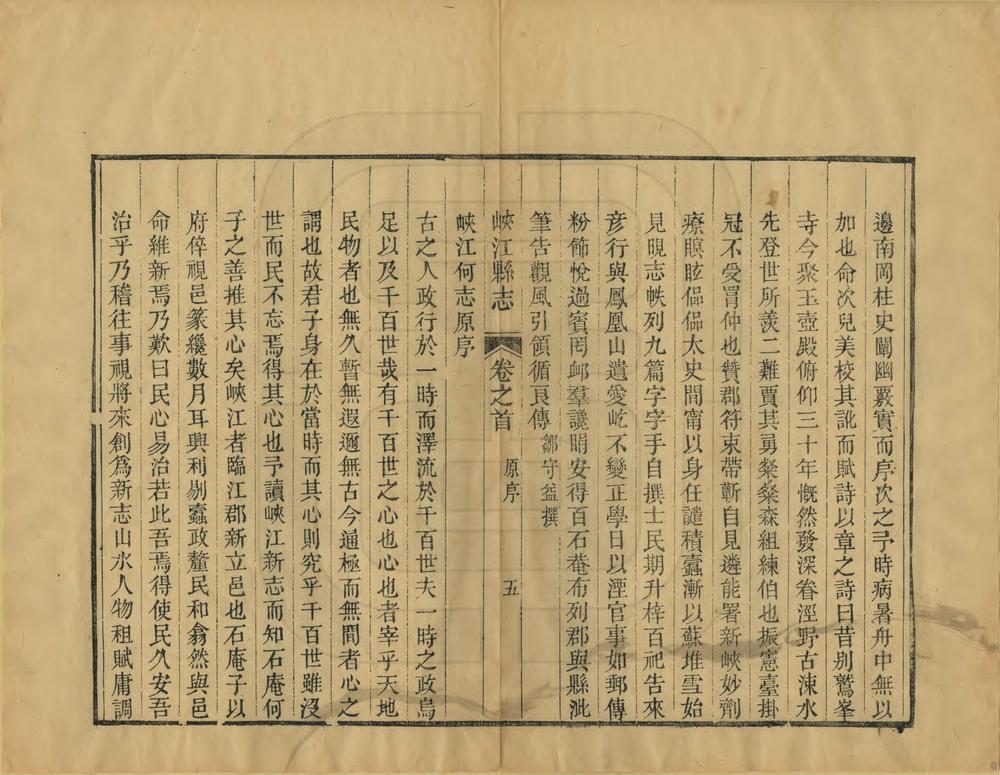 邊南岡柱史闡幽覈實而序次之予時病暑舟中無以
加也命次兒美校其訛而賦詩以章之詩曰昔别鷲峯
寺今聚玉壺殿俯仰三十年慨然發深眷涇野古涑水
先登世所羨二難賈其勇粲粲森組練伯也振憲臺掛
冠不受罥仲也贊郡符束帶蘄自見遴能署新峽妙劑
療瞑眩偘偘太史間甯以身任譴積蠹漸以蘇堆雪始
見晛志帙列九篇字字手自撰士民期升梓百祀告來
彦行與鳳凰山遺愛屹不變正學日以湮官事如郵傳
粉飾悅過賓罔卹羣讒睊安得百石菴布列郡與縣泚
筆告觀風引領循良傳 鄒守益撰
峽江縣志 卷之首 原序 五
峽江何志原序
古之人政行於一時而澤流於千百世夫一時之政烏
足以及千百世哉有千百世之心也心也者宰乎天地
民物者也無久暫無遐邇無古今通極而無間者心之
謂也故君子身在於當時而其心則究乎千百世雖沒
世而民不忘焉得其心也予讀峽江新志而知石庵何
子之善推其心矣峽江者臨江郡新立邑也石庵子以
府倅視邑篆纔數月耳興利剔蠹政釐民和翕然與邑
命維新焉乃歎曰民心易治若此吾焉得使民久安吾
治乎乃稽往事視將來創爲新志山水人物租賦庸調